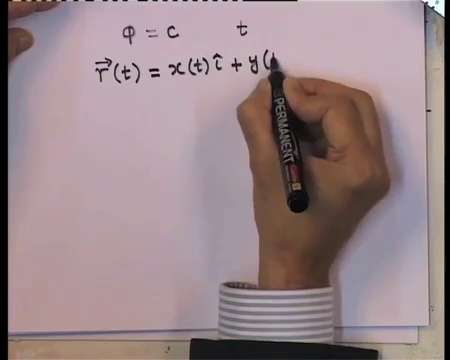 φ = c t
r⃗(t) = x(t) î + y(
PERMANENT